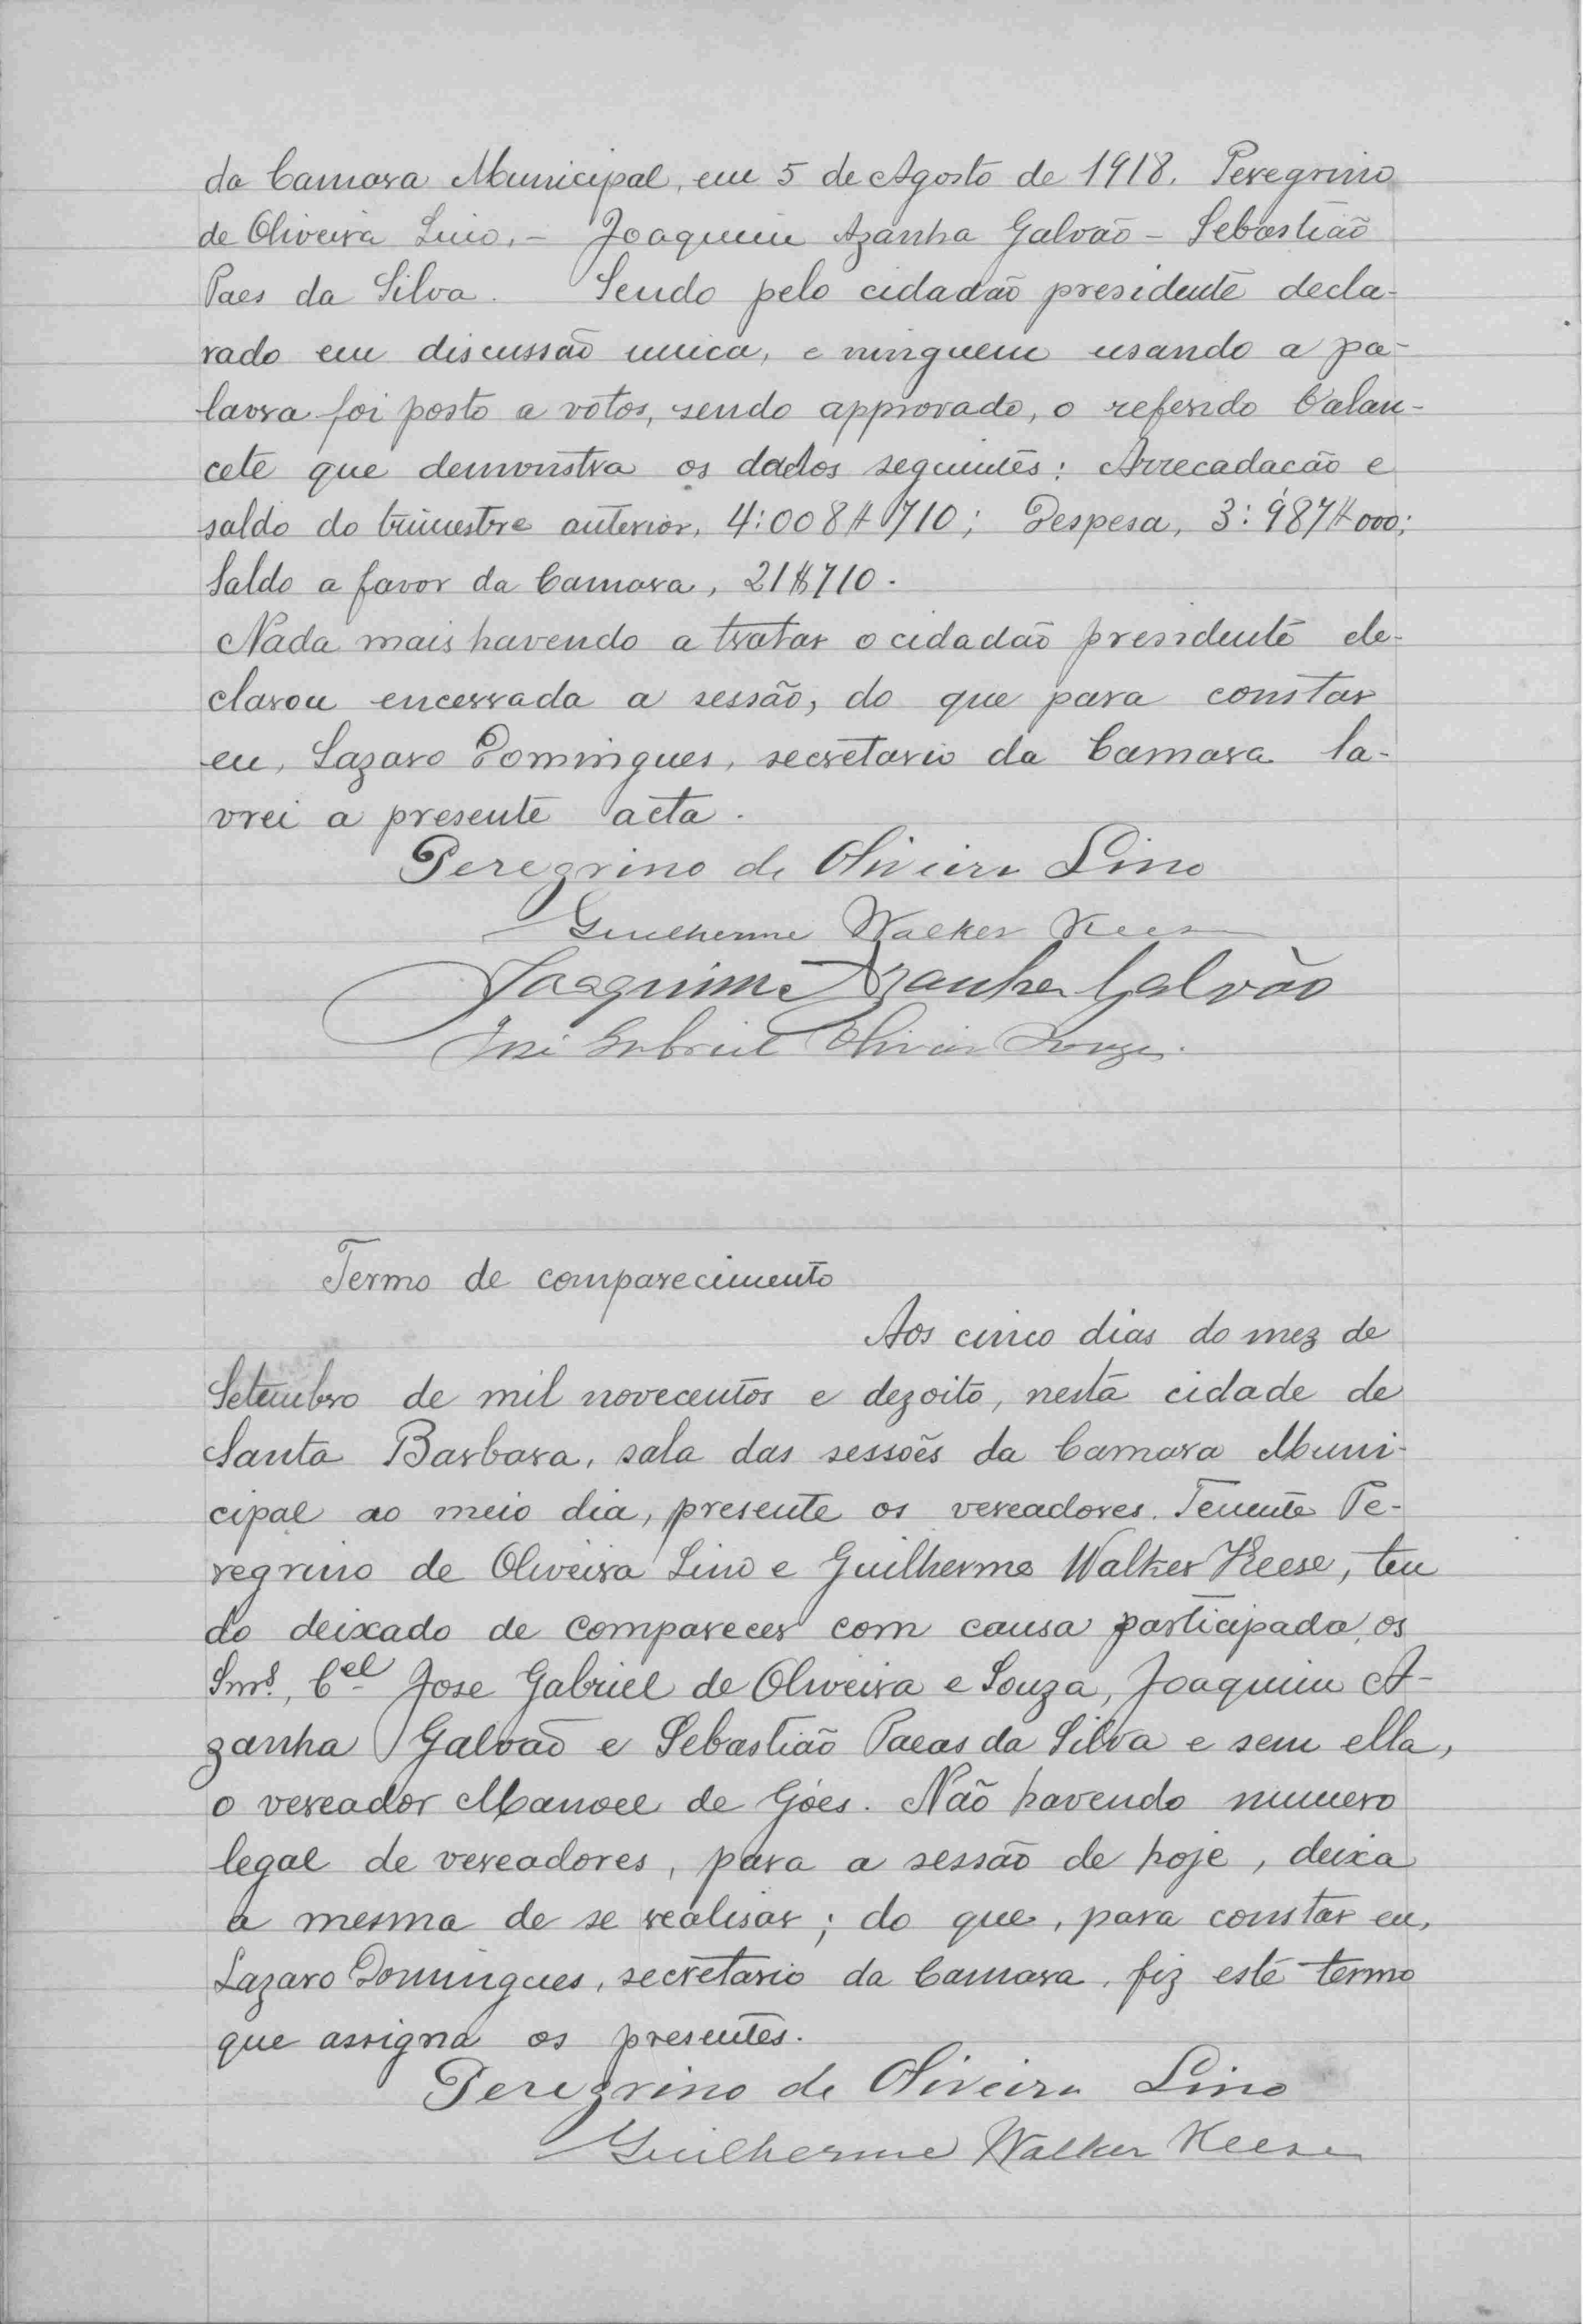 da Camara Municipal, em 5 de Agosto de 1918. Peregrino
de Oliveira Lino. - Joaquim Azanha Galvão - Sebastião
Paes da Silva. Sendo pelo cidadão presidente decla-
rado em discussão unica, e ninguem usando a pa-
lavra foi posto a votos, sendo approvado, o referido balan-
cete que demonstra os dados seguintes: Arrecadacão e
saldo do trimestre anterior, 4:008$710; Despesa, 3:987$000;
Saldo a favor da Camara, 21$710.
Nada mais havendo a tratar o cidadão presidente de-
clarou encerrada a sessão, do que para constar
eu, Lazaro Domingues, secretario da Camara la-
vrei a presente acta.
Peregrino de Oliveira Lino
Guilherme Walker Keese
Joaquim Azanha Galvão
José Gabriel Oliveira Souza.
Termo de comparecimento
Aos cinco dias do mez de
Setembro de mil novecentos e dezoito, nesta cidade de
Santa Barbara, sala das sessões da Camara Muni-
cipal ao meio dia, presente os vereadores. Tenente Pe-
regrino de Oliveira Lino e Guilherme Walker Keese, ten
do deixado de comparecer com causa participada, os
Snrs., Cel José Gabriel de Oliveira e Souza, Joaquim A-
zanha Galvão e Sebastião Paeas da Silva e sem ella,
o vereador Manoel de Góes. Não havendo numero
legal de vereadores, para a sessão de hoje, deixa
a mesma de se realisar; do que, para constar eu,
Lazaro Domingues, secretario da Camara, fiz este termo
que assigna os presentes.
Peregrino de Oliveira Lino
Guilherme Walker Keese